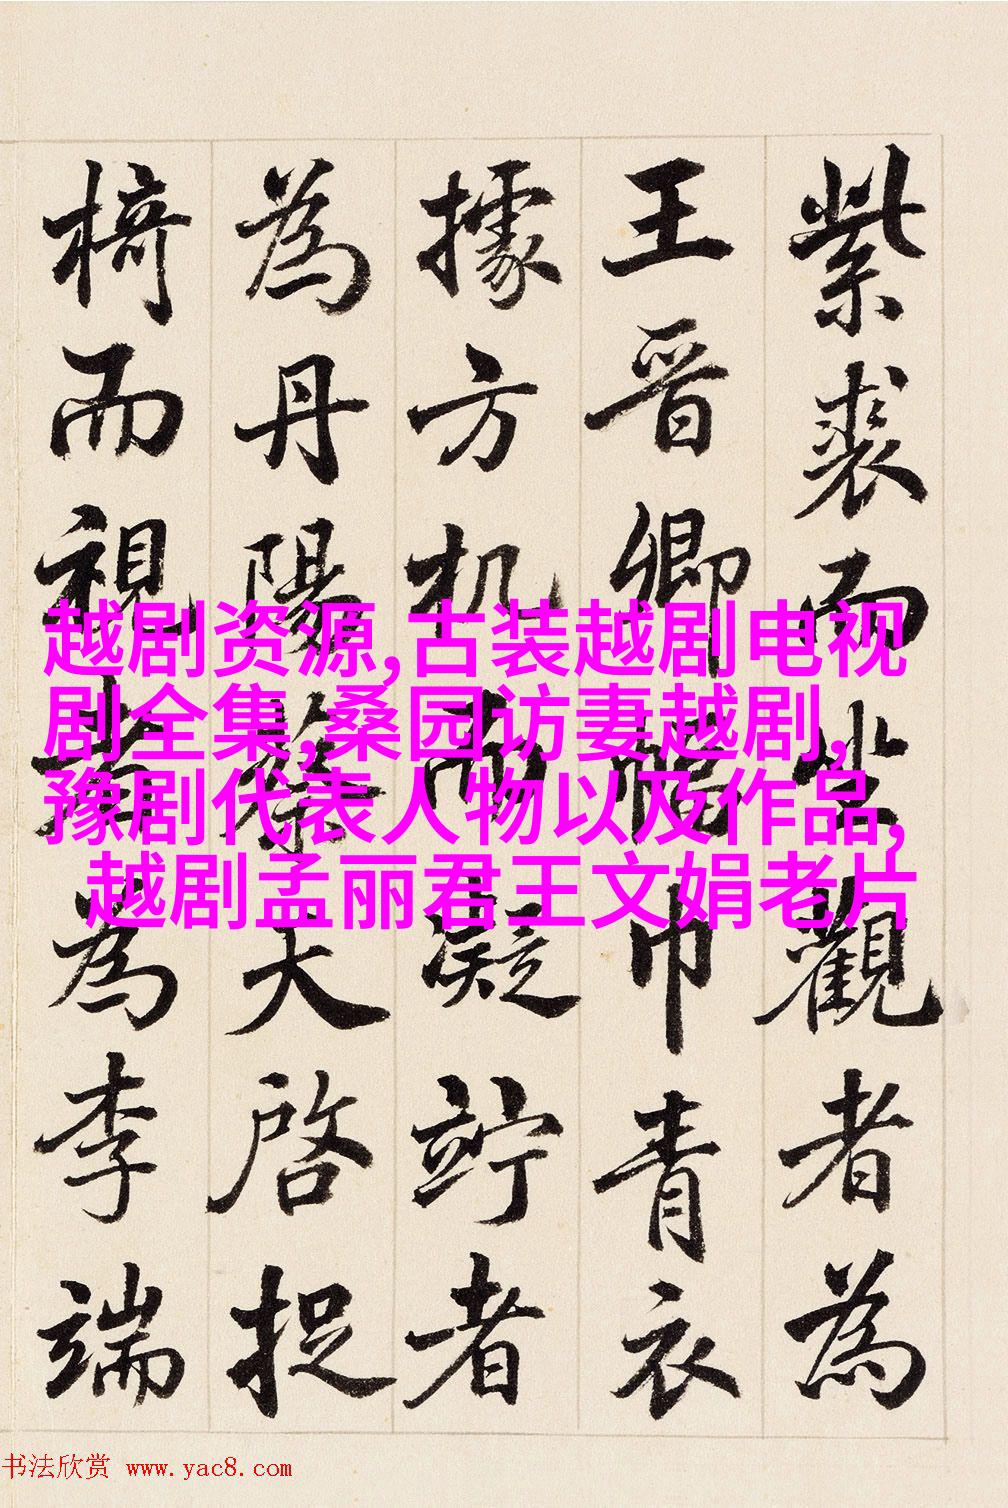 紫裘而坐觀者為
王晋卿幅巾青衣
據方机而凝竚者
為丹陽蔡天啓捉
椅而視者為李端
越剧资源,古装越剧电视
剧全集,桑园访妻越剧,
豫剧代表人物以及作品,
越剧孟丽君王文娟老片
书法欣赏 www.yac8.com